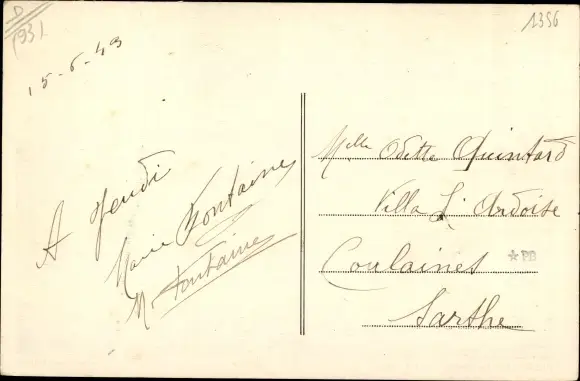 D
(931
1356
15-6-49
A Jeudi
Marie Fontaine
M. Fontaine
Melle Odette Quintard
Villa L'Ardoise
Coulaines
★PB
Sarthe